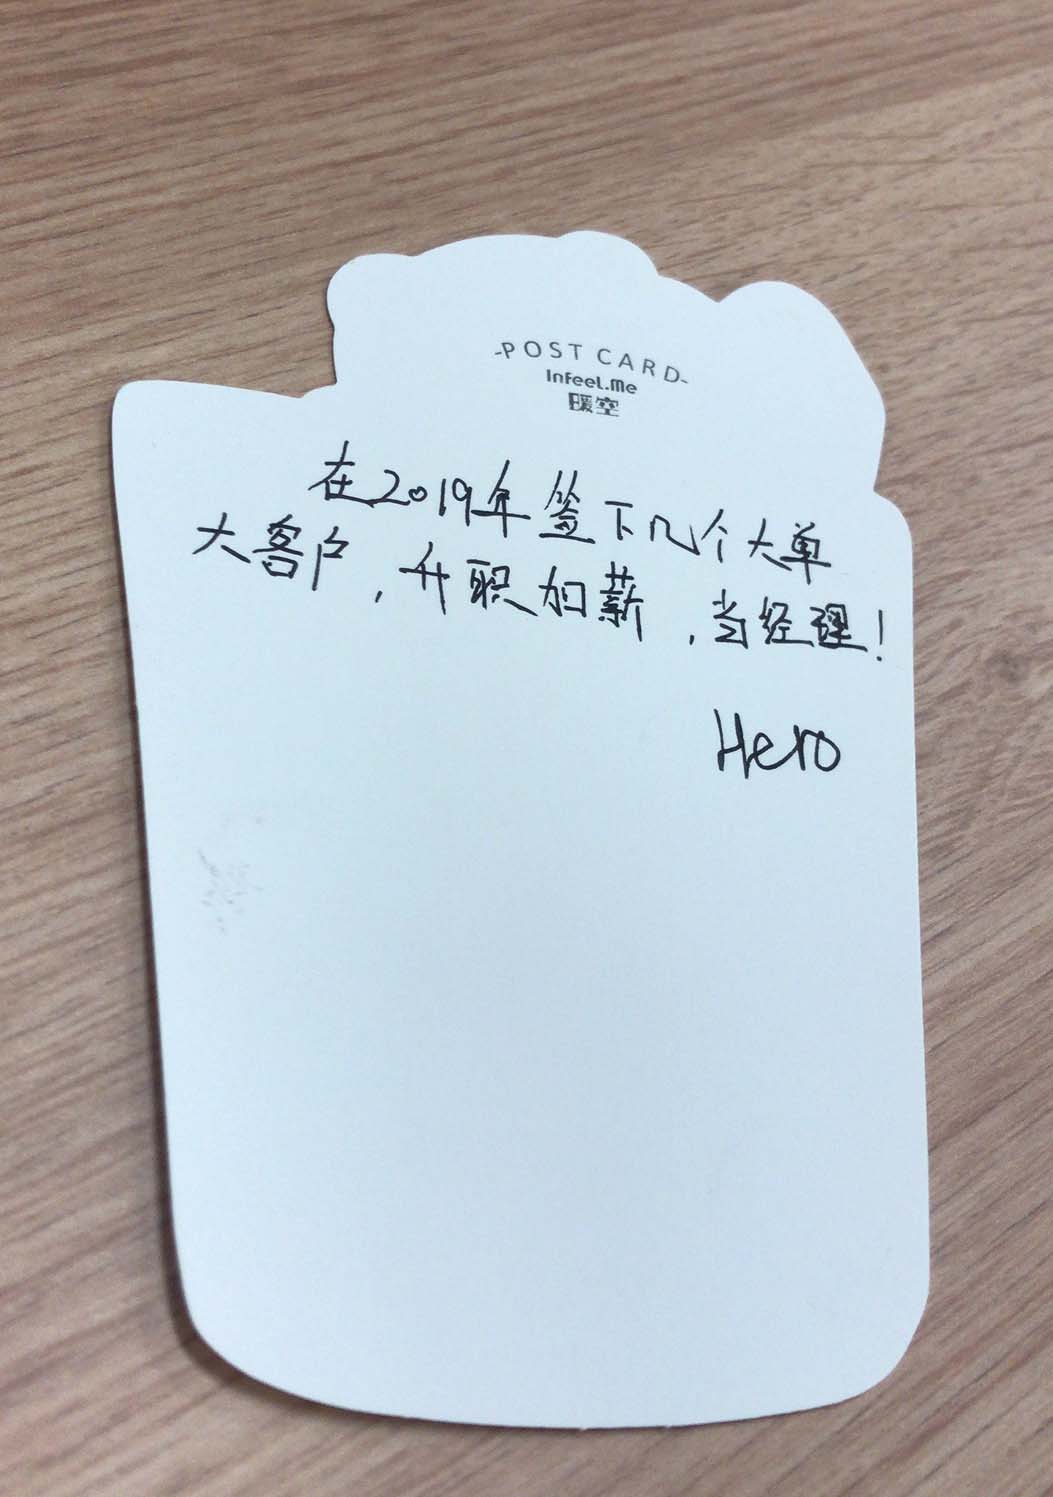 -POST CARD-
InFeeL.Me
暖空
在2019年签下几个大单
大客户，升职加薪，当经理！
Hero